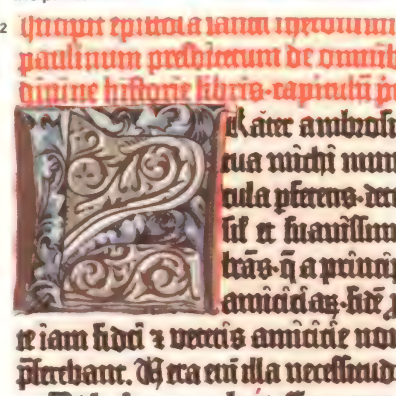 2 Incipit epistola sancti iheronimi
paulinum presbiterum de omnib
divine historie libris. capitulū p
Frater ambrosi
tua michi mun
tula pferens. det
sil et suavissim
trās. q̄ a princip
amiciciaꝝ. fidē p
te iam fidei ⁊ veteris amicicie nov
p̄ferebant. Vera eni illa necessitud